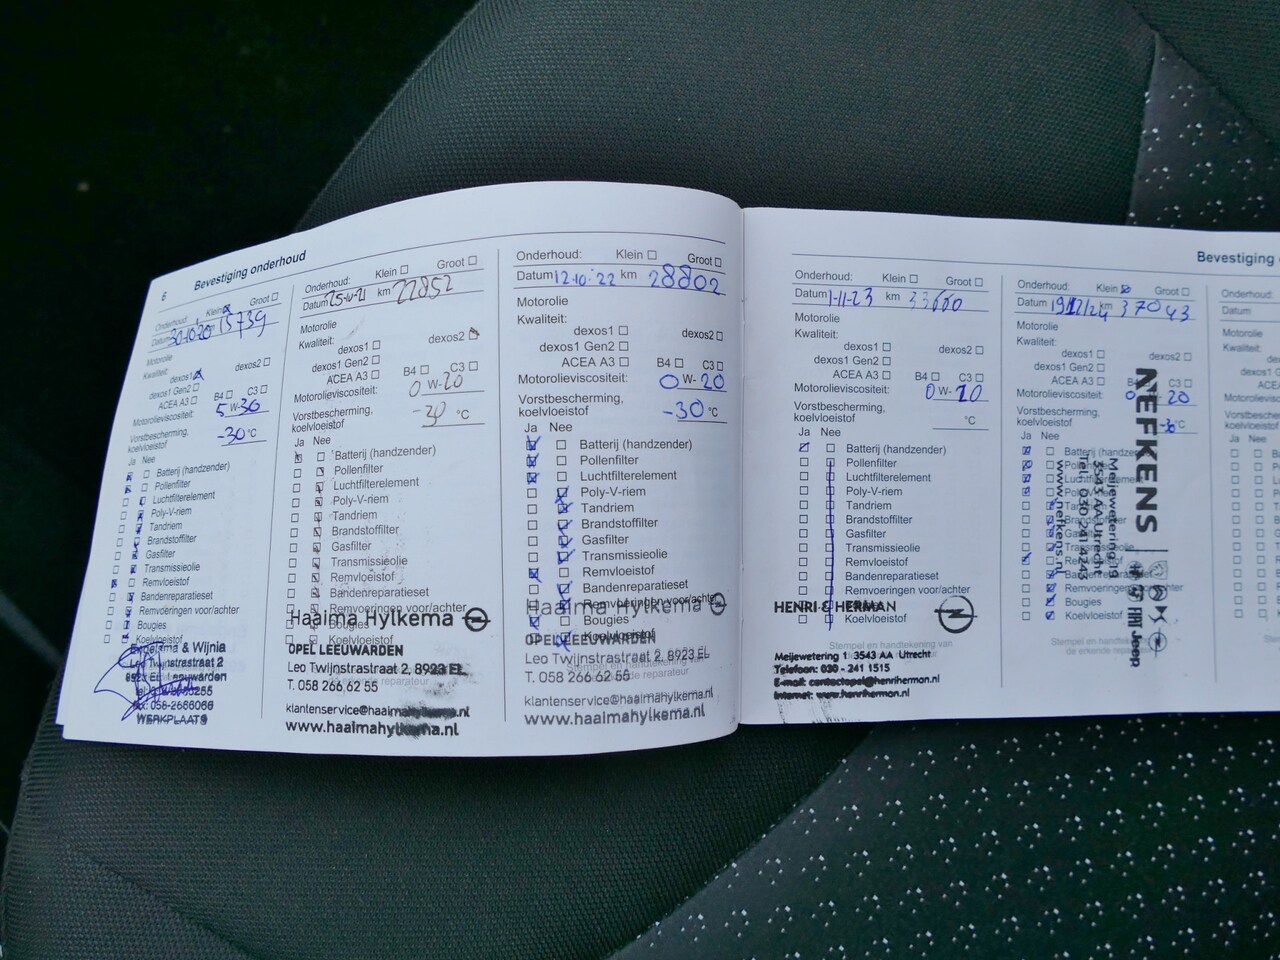 6 Bevestiging onderhoud
Onderhoud: Klein Groot
Datum 30-10-20 15739
Motorolie
Kwaliteit:
dexos1 dexos2
dexos1 Gen2
ACEA A3 B4 C3
Motorolieviscositeit: 5 W-30
Vorstbescherming,
koelvloeistof -30 °C
Ja Nee
Batterij (handzender)
Pollenfilter
Luchtfilterelement
Poly-V-riem
Tandriem
Brandstoffilter
Gasfilter
Transmissieolie
Remvloeistof
Bandenreparatieset
Remvoeringen voor/achter
Bougies
Koelvloeistof
& Wijnia
Leo Twijnstrastraat 2
Leeuwarden
fax: 058-2668066
WERKPLAATS
Onderhoud: Klein Groot
Datum 25-10-21 km 22852
Motorolie
Kwaliteit:
dexos1 dexos2
dexos1 Gen2
ACEA A3 B4 C3
Motorolieviscositeit: 0 W-20
Vorstbescherming,
koelvloeistof -30 °C
Ja Nee
Batterij (handzender)
Pollenfilter
Luchtfilterelement
Poly-V-riem
Tandriem
Brandstoffilter
Gasfilter
Transmissieolie
Remvloeistof
Bandenreparatieset
Remvoeringen voor/achter
Bougies
Koelvloeistof
Haaima Hylkema
OPEL LEEUWARDEN
Leo Twijnstrastraat 2, 8923 EL
T. 058 266 62 55
klantenservice@haaimahylkema.nl
www.haaimahylkema.nl
Onderhoud: Klein Groot
Datum 12-10-'22 km 28802
Motorolie
Kwaliteit:
dexos1 dexos2
dexos1 Gen2
ACEA A3 B4 C3
Motorolieviscositeit: 0 W-20
Vorstbescherming,
koelvloeistof -30 °C
Ja Nee
Batterij (handzender)
Pollenfilter
Luchtfilterelement
Poly-V-riem
Tandriem
Brandstoffilter
Gasfilter
Transmissieolie
Remvloeistof
Bandenreparatieset
Remvoeringen voor/achter
Bougies
Koelvloeistof
Haaima Hylkema
OPEL LEEUWARDEN
Leo Twijnstrastraat 2, 8923 EL
T. 058 266 62 55
klantenservice@haaimahylkema.nl
www.haaimahylkema.nl
Bevestiging
Onderhoud: Klein Groot
Datum 1-11-23 km 33660
Motorolie
Kwaliteit:
dexos1 dexos2
dexos1 Gen2
ACEA A3 B4 C3
Motorolieviscositeit: 0 W-20
Vorstbescherming,
koelvloeistof °C
Ja Nee
Batterij (handzender)
Pollenfilter
Luchtfilterelement
Poly-V-riem
Tandriem
Brandstoffilter
Gasfilter
Transmissieolie
Remvloeistof
Bandenreparatieset
Remvoeringen voor/achter
HENRI & HERMAN
Stempel en handtekening van
de erkende reparateur
Meijewetering 1 3543 AA Utrecht
Telefoon: 030 - 241 1515
E-mail: contactopel@henriherman.nl
Internet: www.henriherman.nl
Onderhoud: Klein Groot
Datum km 37043
Motorolie
Kwaliteit:
dexos1 dexos2
dexos1 Gen2
ACEA A3 B4 C3
Motorolieviscositeit: 0 20
Vorstbescherming,
koelvloeistof °C
Ja Nee
Batterij (handzender)
Pollenfilter
Luchtfilterelement
Poly-V-riem
Tandriem
Brandstoffilter
Gasfilter
Transmissieolie
Remvloeistof
Bandenreparatieset
Remvoeringen voor/achter
Bougies
Koelvloeistof
NEFKENS
Meijewetering 19
3543 AA Utrecht
Tel. 030 241 4243
www.nefkens.nl
FIAT Jeep
Onderhoud:
Datum
Motorolie
Kwaliteit:
Motorolieviscositeit
koelvloeistof
Ja Nee